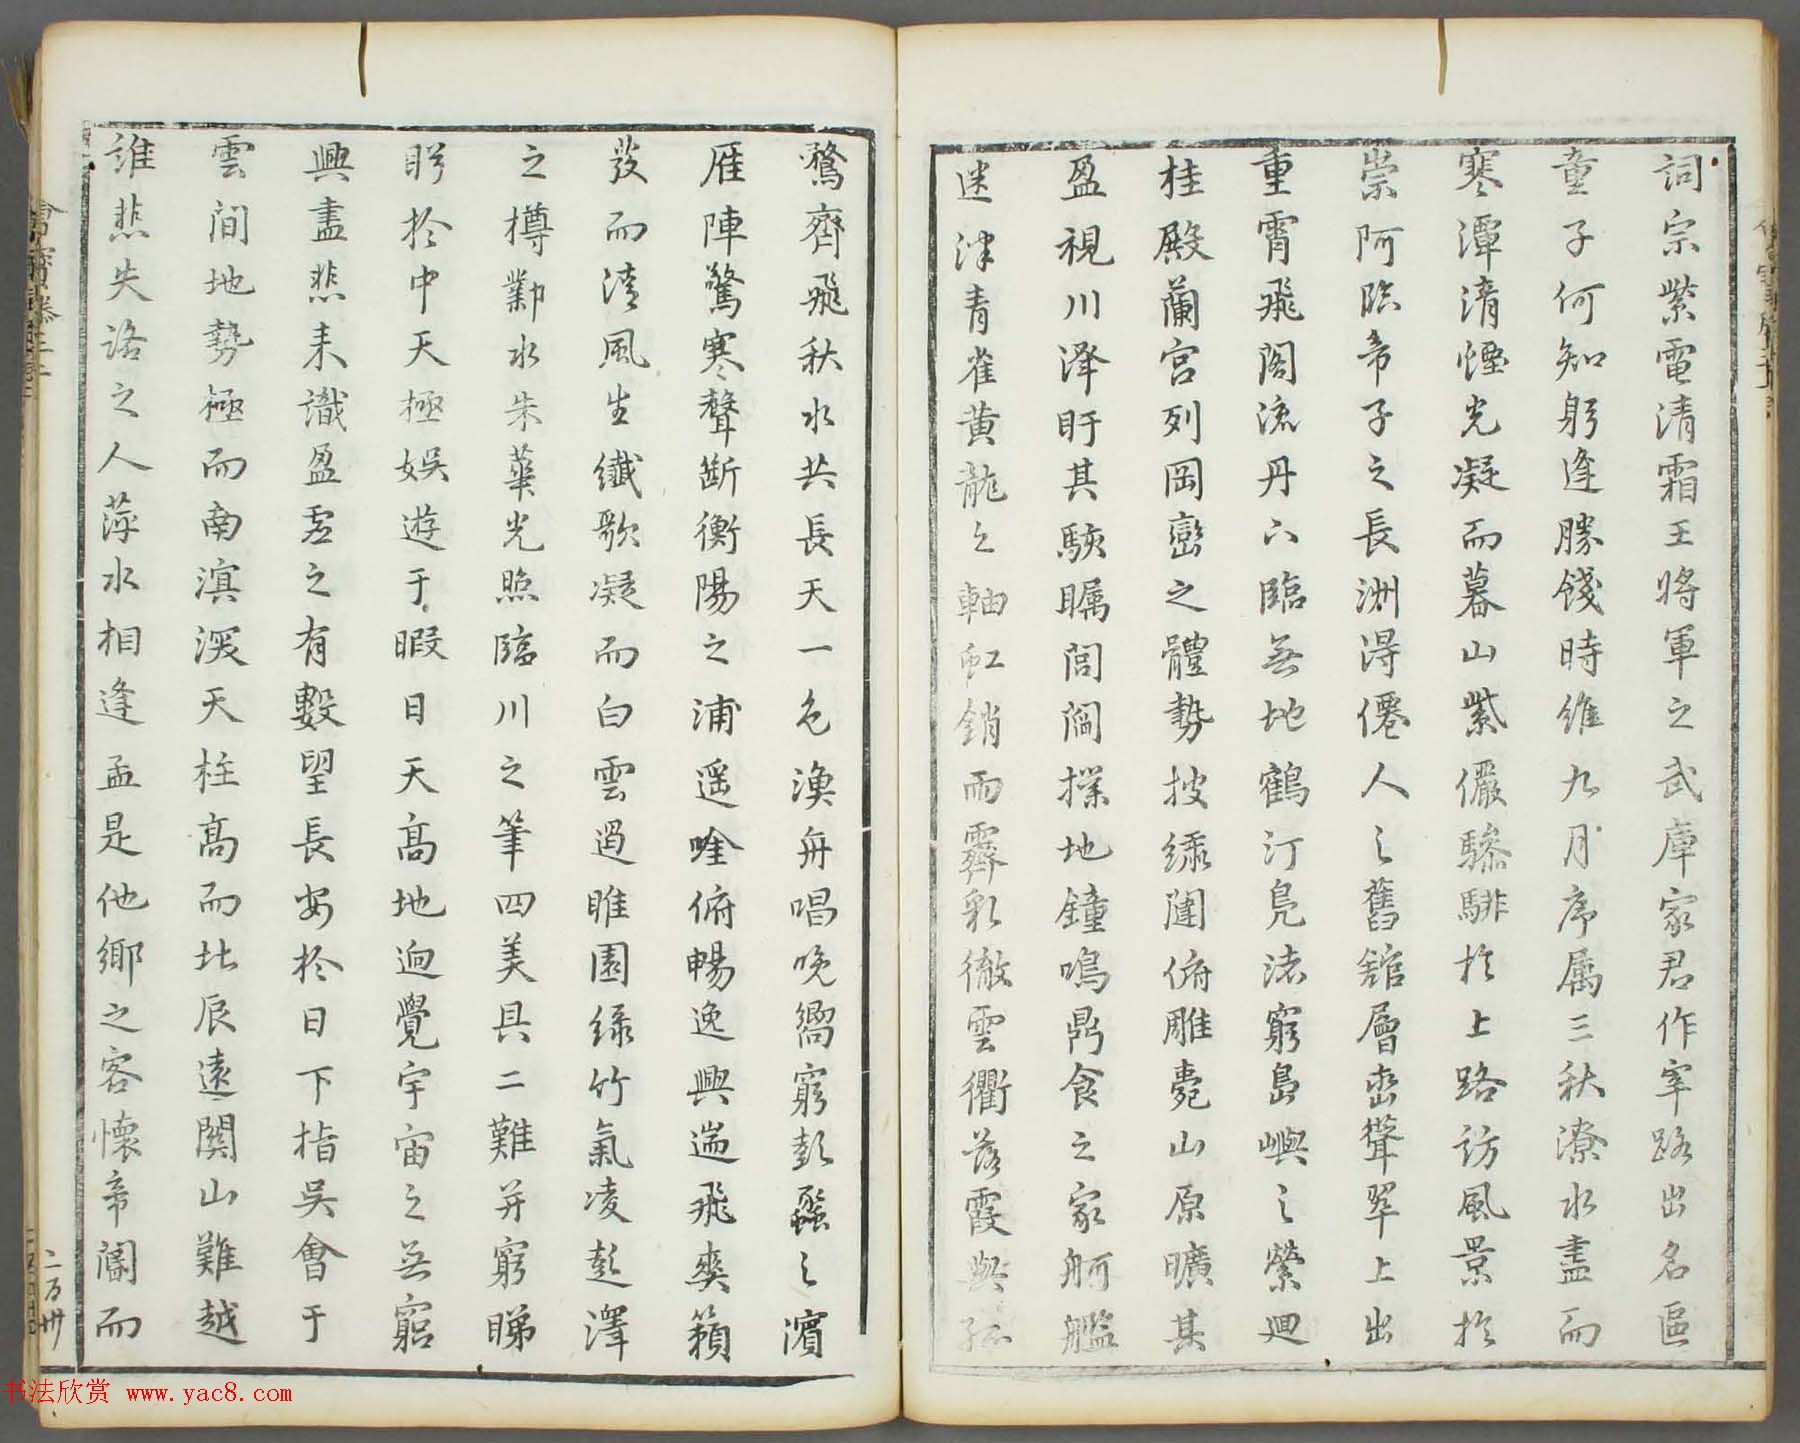 詞宗紫電清霜王將軍之武庫家君作宰路出名區
童子何知躬逢勝餞時維九月序属三秋潦水盡而
寒潭清煙光凝而暮山紫儼驂騑扵上路訪風景扵
崇阿臨帝子之長洲得僊人之舊舘層巒聳翠上出
重霄飛閣流丹下臨無地鶴汀鳧渚窮島嶼之縈迴
桂殿蘭宮列岡巒之體勢披綉闥俯雕甍山原曠其
盈視川澤盱其駭矚閭閻撲地鐘鳴鼎食之家舸艦
迷津青雀黄龍之軸虹銷雨霽彩徹雲衢落霞與孤
鶩齊飛秋水共長天一色漁舟唱晚響窮彭蠡之濱
雁陣驚寒聲斷衡陽之浦遥吟俯暢逸興遄飛爽籟
發而清風生纖歌凝而白雲遏睢園緑竹氣凌彭澤
之樽鄴水朱華光照臨川之筆四美具二難并窮睇
眄扵中天極娛遊于暇日天高地迥覺宇宙之無窮
興盡悲来識盈虚之有數望長安扵日下指吳會于
雲間地勢極而南溟深天柱高而北辰遠關山難越
誰悲失路之人萍水相逢盡是他鄉之客懷帝閽而
书法欣赏 www.yac8.com